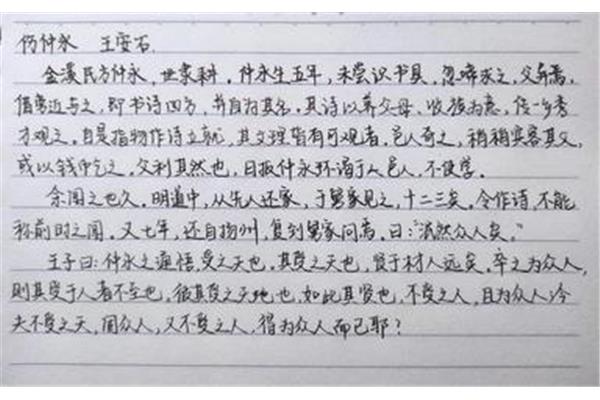 伤仲永 王安石
金溪民方仲永,世隶耕。仲永生五年,未尝识书具,忽啼求之,父异焉,
借旁近与之,即书诗四句,并自为其名,其诗以养父母、收族为意,传一乡秀
才观之。自是指物作诗立就,其文理皆有可观者。邑人奇之,稍稍宾客其父,
或以钱币乞之,父利其然也,日扳仲永环谒于人邑人,不使学。
余闻之也久。明道中,从先人还家,于舅家见之,十二三矣。令作诗,不能
称前时之闻。又七年,还自扬州,复到舅家问焉。曰:“泯然众人矣。”
王子曰:仲永之通悟,受之天也,其受之天也,贤于材人远矣。卒之为众人,
则其受于人者不至也,彼其受之天地也,如此其贤也,不受之人,且为众人;今
夫不受之天,固众人,又不受之人,得为众人而已耶?